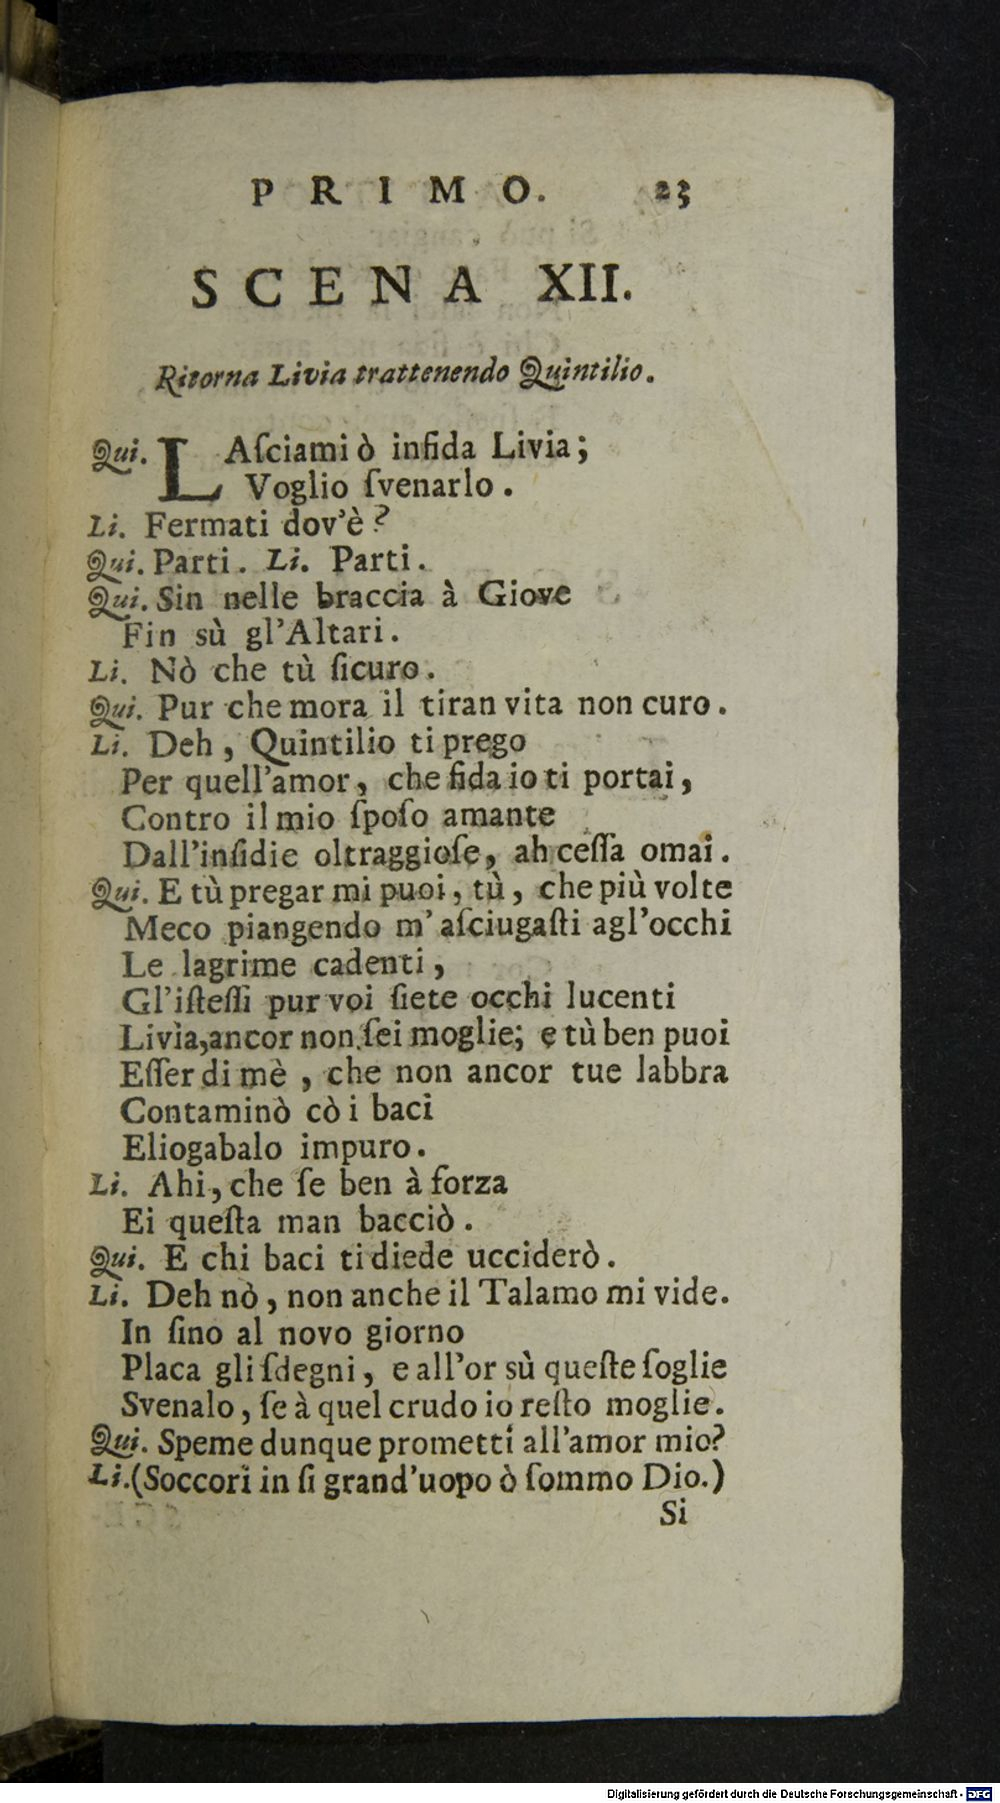 PRIMO. 23
SCENA XII.
Ritorna Livia trattenendo Quintilio.
Qui. LAſciami ò infida Livia;
Voglio ſvenarlo.
Li. Fermati dov'è?
Qui. Parti. Li. Parti.
Qui. Sin nelle braccia à Giove
Fin sù gl'Altari.
Li. Nò che tù ſicuro.
Qui. Pur che mora il tiran vita non curo.
Li. Deh, Quintilio ti prego
Per quell'amor, che fida io ti portai,
Contro il mio ſpoſo amante
Dall'inſidie oltraggioſe, ah ceſſa omai.
Qui. E tù pregar mi puoi, tù, che più volte
Meco piangendo m'aſciugaſti agl'occhi
Le lagrime cadenti,
Gl'iſteſſi pur voi ſiete occhi lucenti
Livia,ancor non ſei moglie; e tù ben puoi
Eſſer di mè, che non ancor tue labbra
Contaminò cò i baci
Eliogabalo impuro.
Li. Ahi, che ſe ben à forza
Ei queſta man bacciò.
Qui. E chi baci ti diede ucciderò.
Li. Deh nò, non anche il Talamo mi vide.
In ſino al novo giorno
Placa gli ſdegni, e all'or sù queſte ſoglie
Svenalo, ſe à quel crudo io reſto moglie.
Qui. Speme dunque prometti all'amor mio?
Li. (Soccori in ſi grand'uopo ò ſommo Dio.)
Si
Digitalisierung gefördert durch die Deutsche Forschungsgemeinschaft - DFG